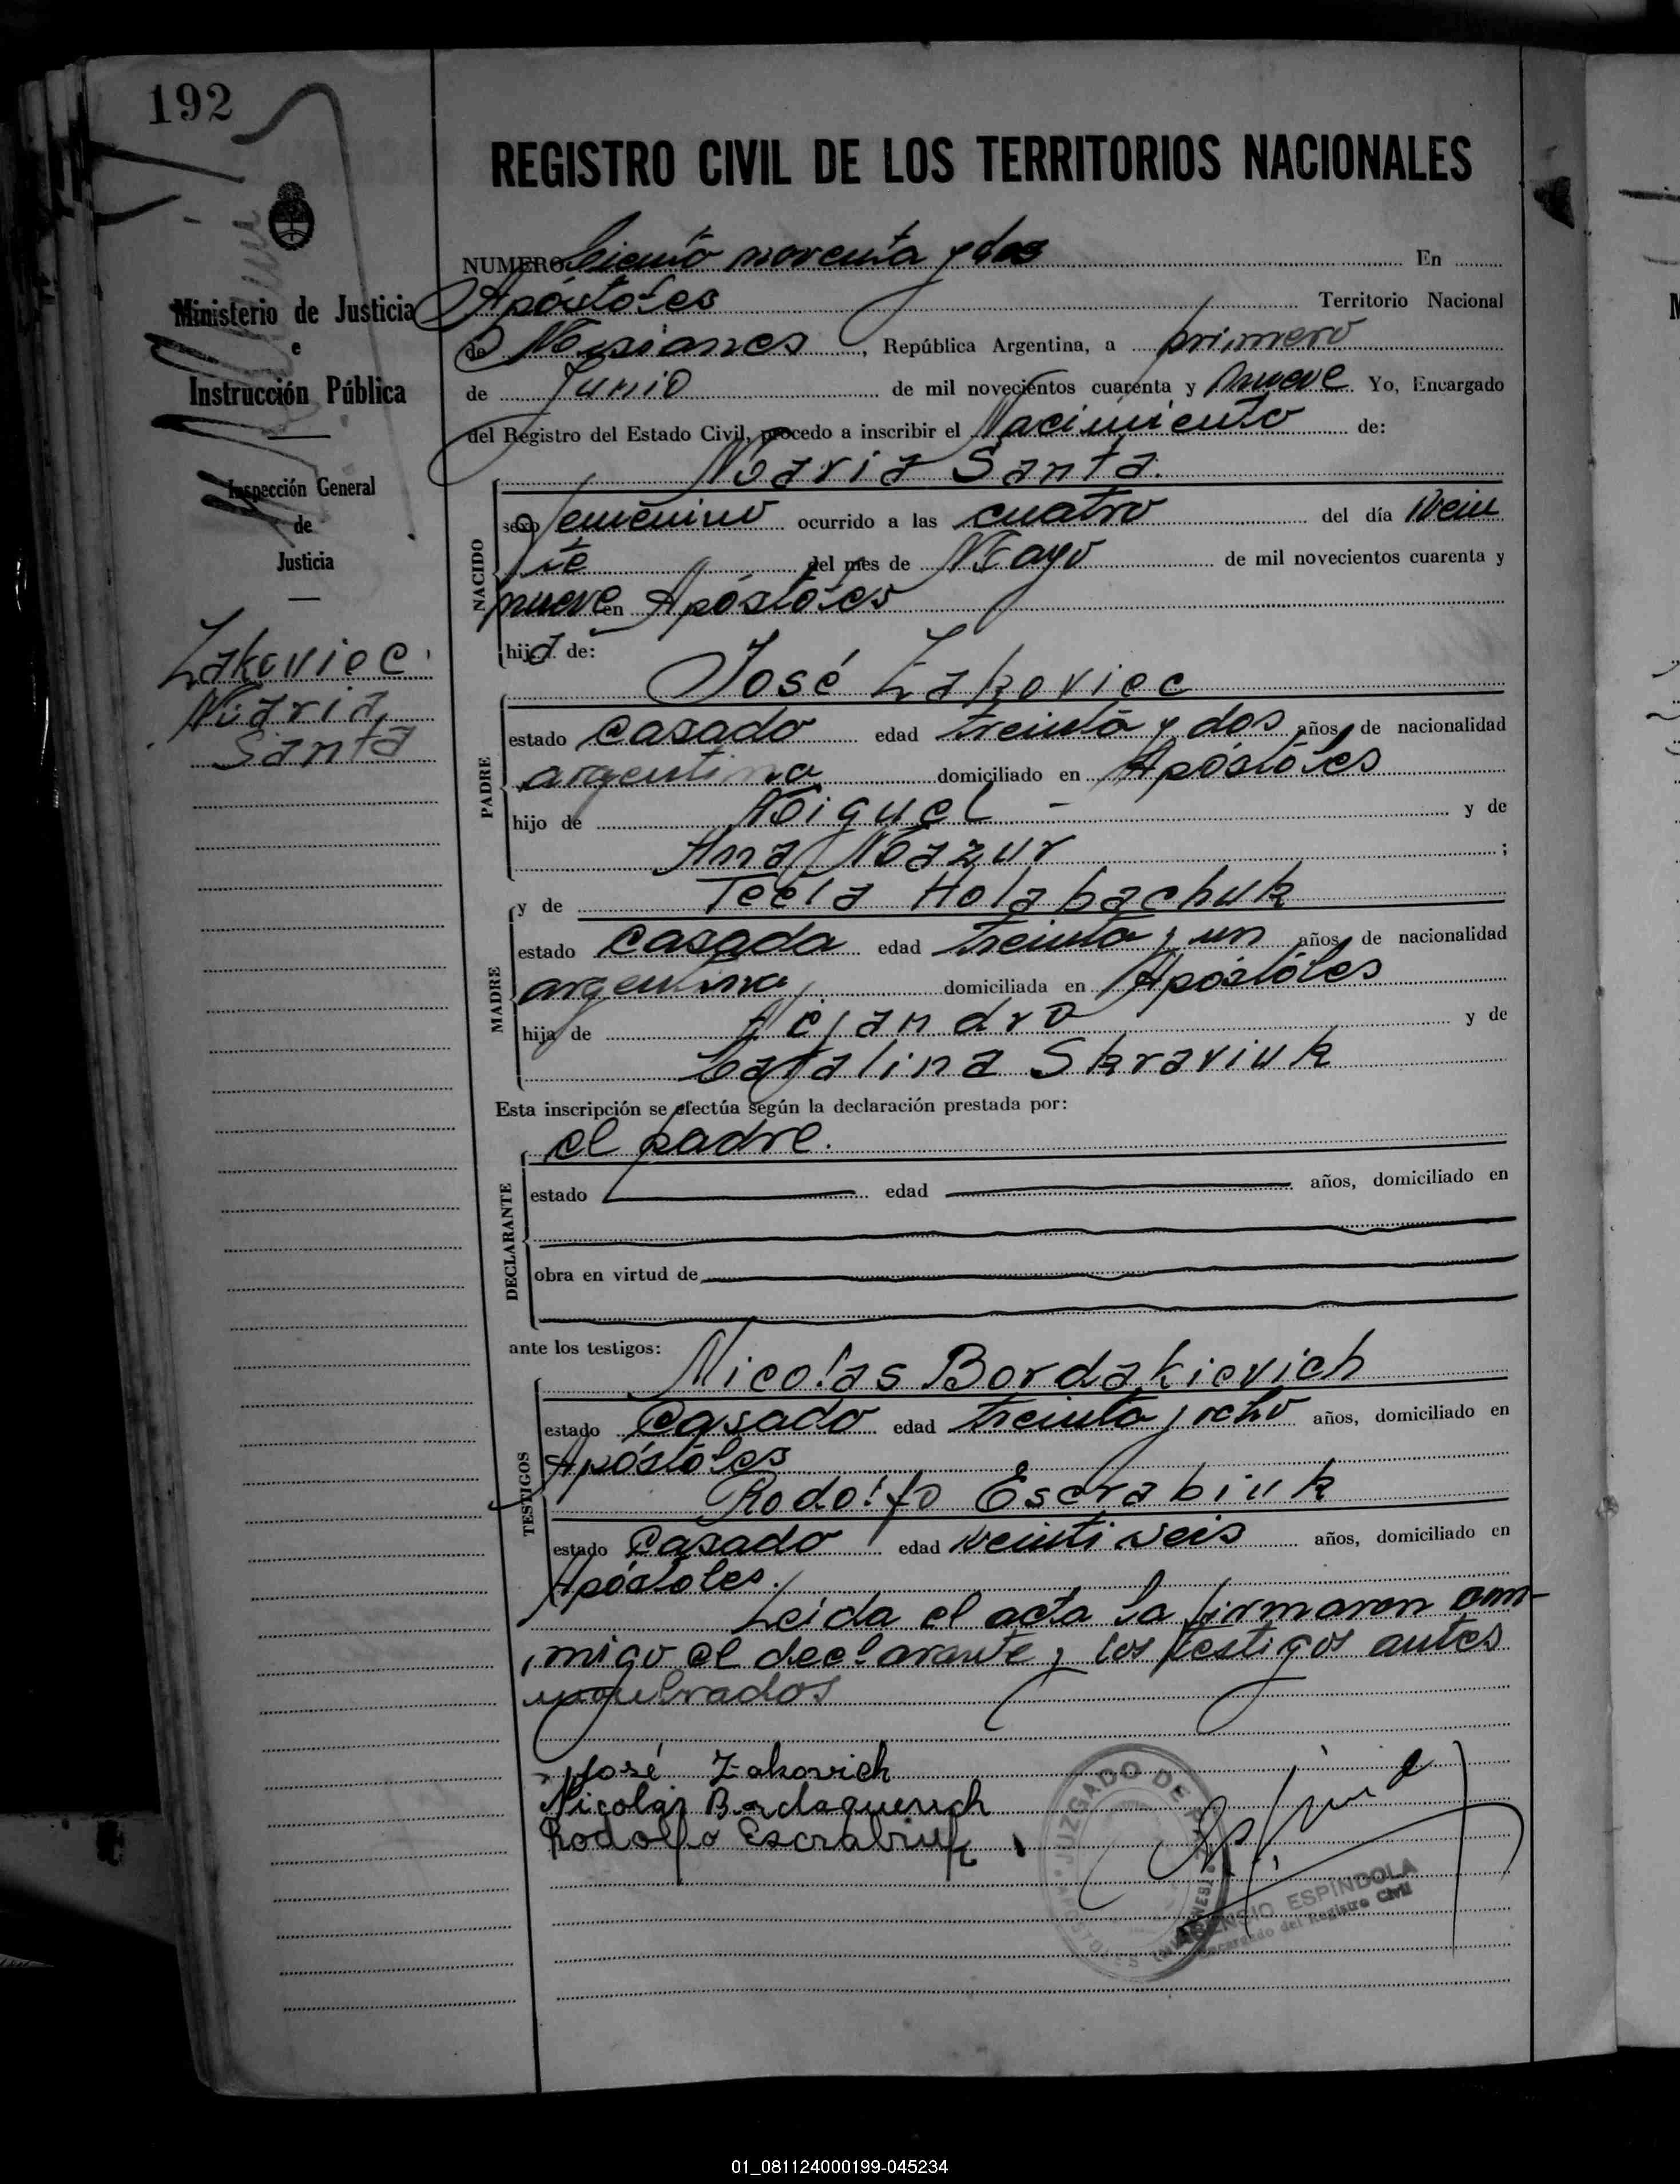 192
REGISTRO CIVIL DE LOS TERRITORIOS NACIONALES
Ministerio de Justicia
e
Instrucción Pública
Inspección General
de
Justicia
Zakoviec
María
Santa
NUMERO Ciento noventa y dos En
Apóstoles Territorio Nacional
de Misiones, República Argentina, a primero
de Junio de mil novecientos cuarenta y nueve Yo, Encargado
del Registro del Estado Civil, procedo a inscribir el Nacimiento de:
María Santa.
NACIDO
sexo femenino ocurrido a las cuatro del día vein
te del mes de Mayo de mil novecientos cuarenta y
nueve en Apóstoles
hija de:
José Zakoviec
PADRE
estado casado edad treinta y dos años, de nacionalidad
argentina domiciliado en Apóstoles
hijo de Miguel - y de
Ana Mazur ;
y de Tecla Holabachuk
MADRE
estado casada edad treinta y un años, de nacionalidad
argentina domiciliada en Apóstoles
hija de Alejandro y de
Catalina Skraviuk
Esta inscripción se efectúa según la declaración prestada por:
el padre.
DECLARANTE
estado edad años, domiciliado en
obra en virtud de
ante los testigos:
Nicolas Bordakievich
TESTIGOS
estado Casado edad treinta y ocho años, domiciliado en
Apóstoles
Rodolfo Escrabiuk
estado Casado edad veinti seis años, domiciliado en
Apóstoles.
Leida el acta la firmaron con-
migo el declarante y los testigos antes
José Zakovich
Nicolas Bordaquevich
Rodolfo Escrabiuk
JUZGADO DE
ASENSIO ESPÍNDOLA
Encargado del Registro Civil
01_081124000199-045234